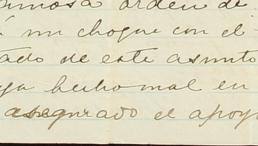 famosa orden de
á un choque con el
tado de este asunto
ya hecho mal en
asegurado el apoy